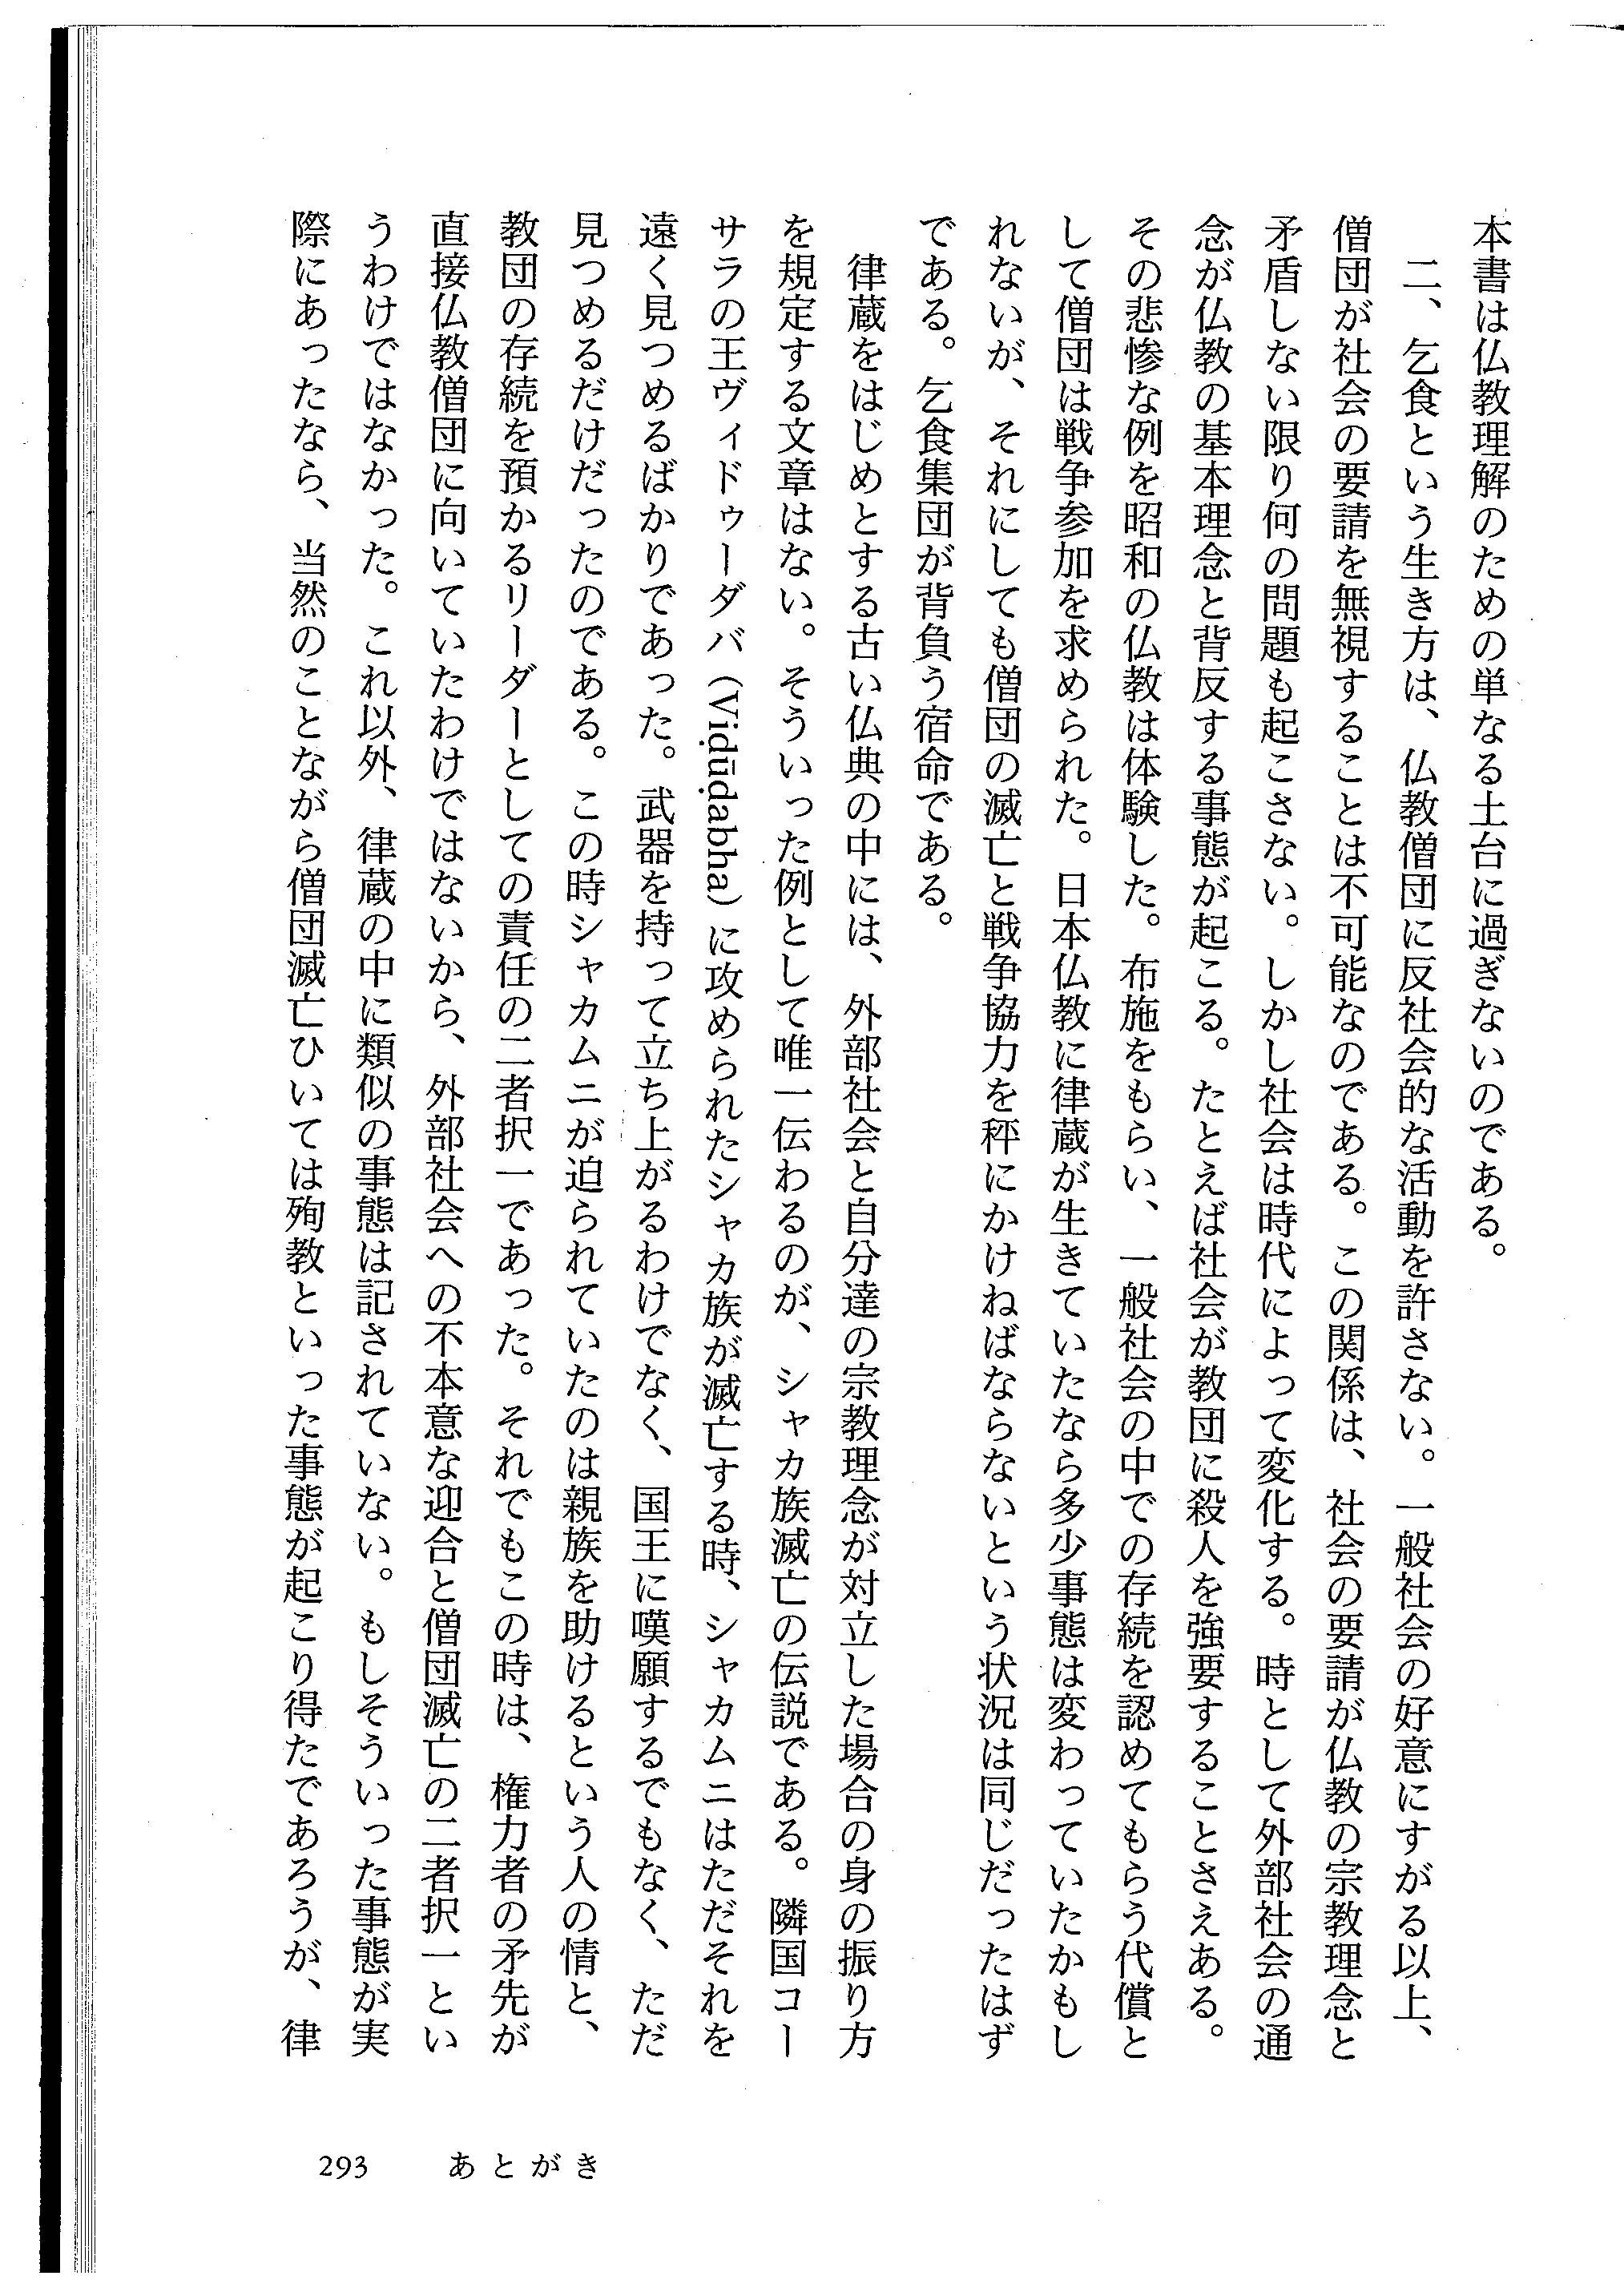 本書は仏教理解のための単なる土台に過ぎないのである。
二、乞食という生き方は、仏教僧団に反社会的な活動を許さない。一般社会の好意にすがる以上、
僧団が社会の要請を無視することは不可能なのである。この関係は、社会の要請が仏教の宗教理念と
矛盾しない限り何の問題も起こさない。しかし社会は時代によって変化する。時として外部社会の通
念が仏教の基本理念と背反する事態が起こる。たとえば社会が教団に殺人を強要することさえある。
その悲惨な例を昭和の仏教は体験した。布施をもらい、一般社会の中での存続を認めてもらう代償と
して僧団は戦争参加を求められた。日本仏教に律蔵が生きていたなら多少事態は変わっていたかもし
れないが、それにしても僧団の滅亡と戦争協力を秤にかけねばならないという状況は同じだったはず
である。乞食集団が背負う宿命である。
律蔵をはじめとする古い仏典の中には、外部社会と自分達の宗教理念が対立した場合の身の振り方
を規定する文章はない。そういった例として唯一伝わるのが、シャカ族滅亡の伝説である。隣国コー
サラの王ヴィドゥーダバ（Viḍūḍabha）に攻められたシャカ族が滅亡する時、シャカムニはただそれを
遠く見つめるばかりであった。武器を持って立ち上がるわけでなく、国王に嘆願するでもなく、ただ
見つめるだけだったのである。この時シャカムニが迫られていたのは親族を助けるという人の情と、
教団の存続を預かるリーダーとしての責任の二者択一であった。それでもこの時は、権力者の矛先が
直接仏教僧団に向いていたわけではないから、外部社会への不本意な迎合と僧団滅亡の二者択一とい
うわけではなかった。これ以外、律蔵の中に類似の事態は記されていない。もしそういった事態が実
際にあったなら、当然のことながら僧団滅亡ひいては殉教といった事態が起こり得たであろうが、律
293 あとがき